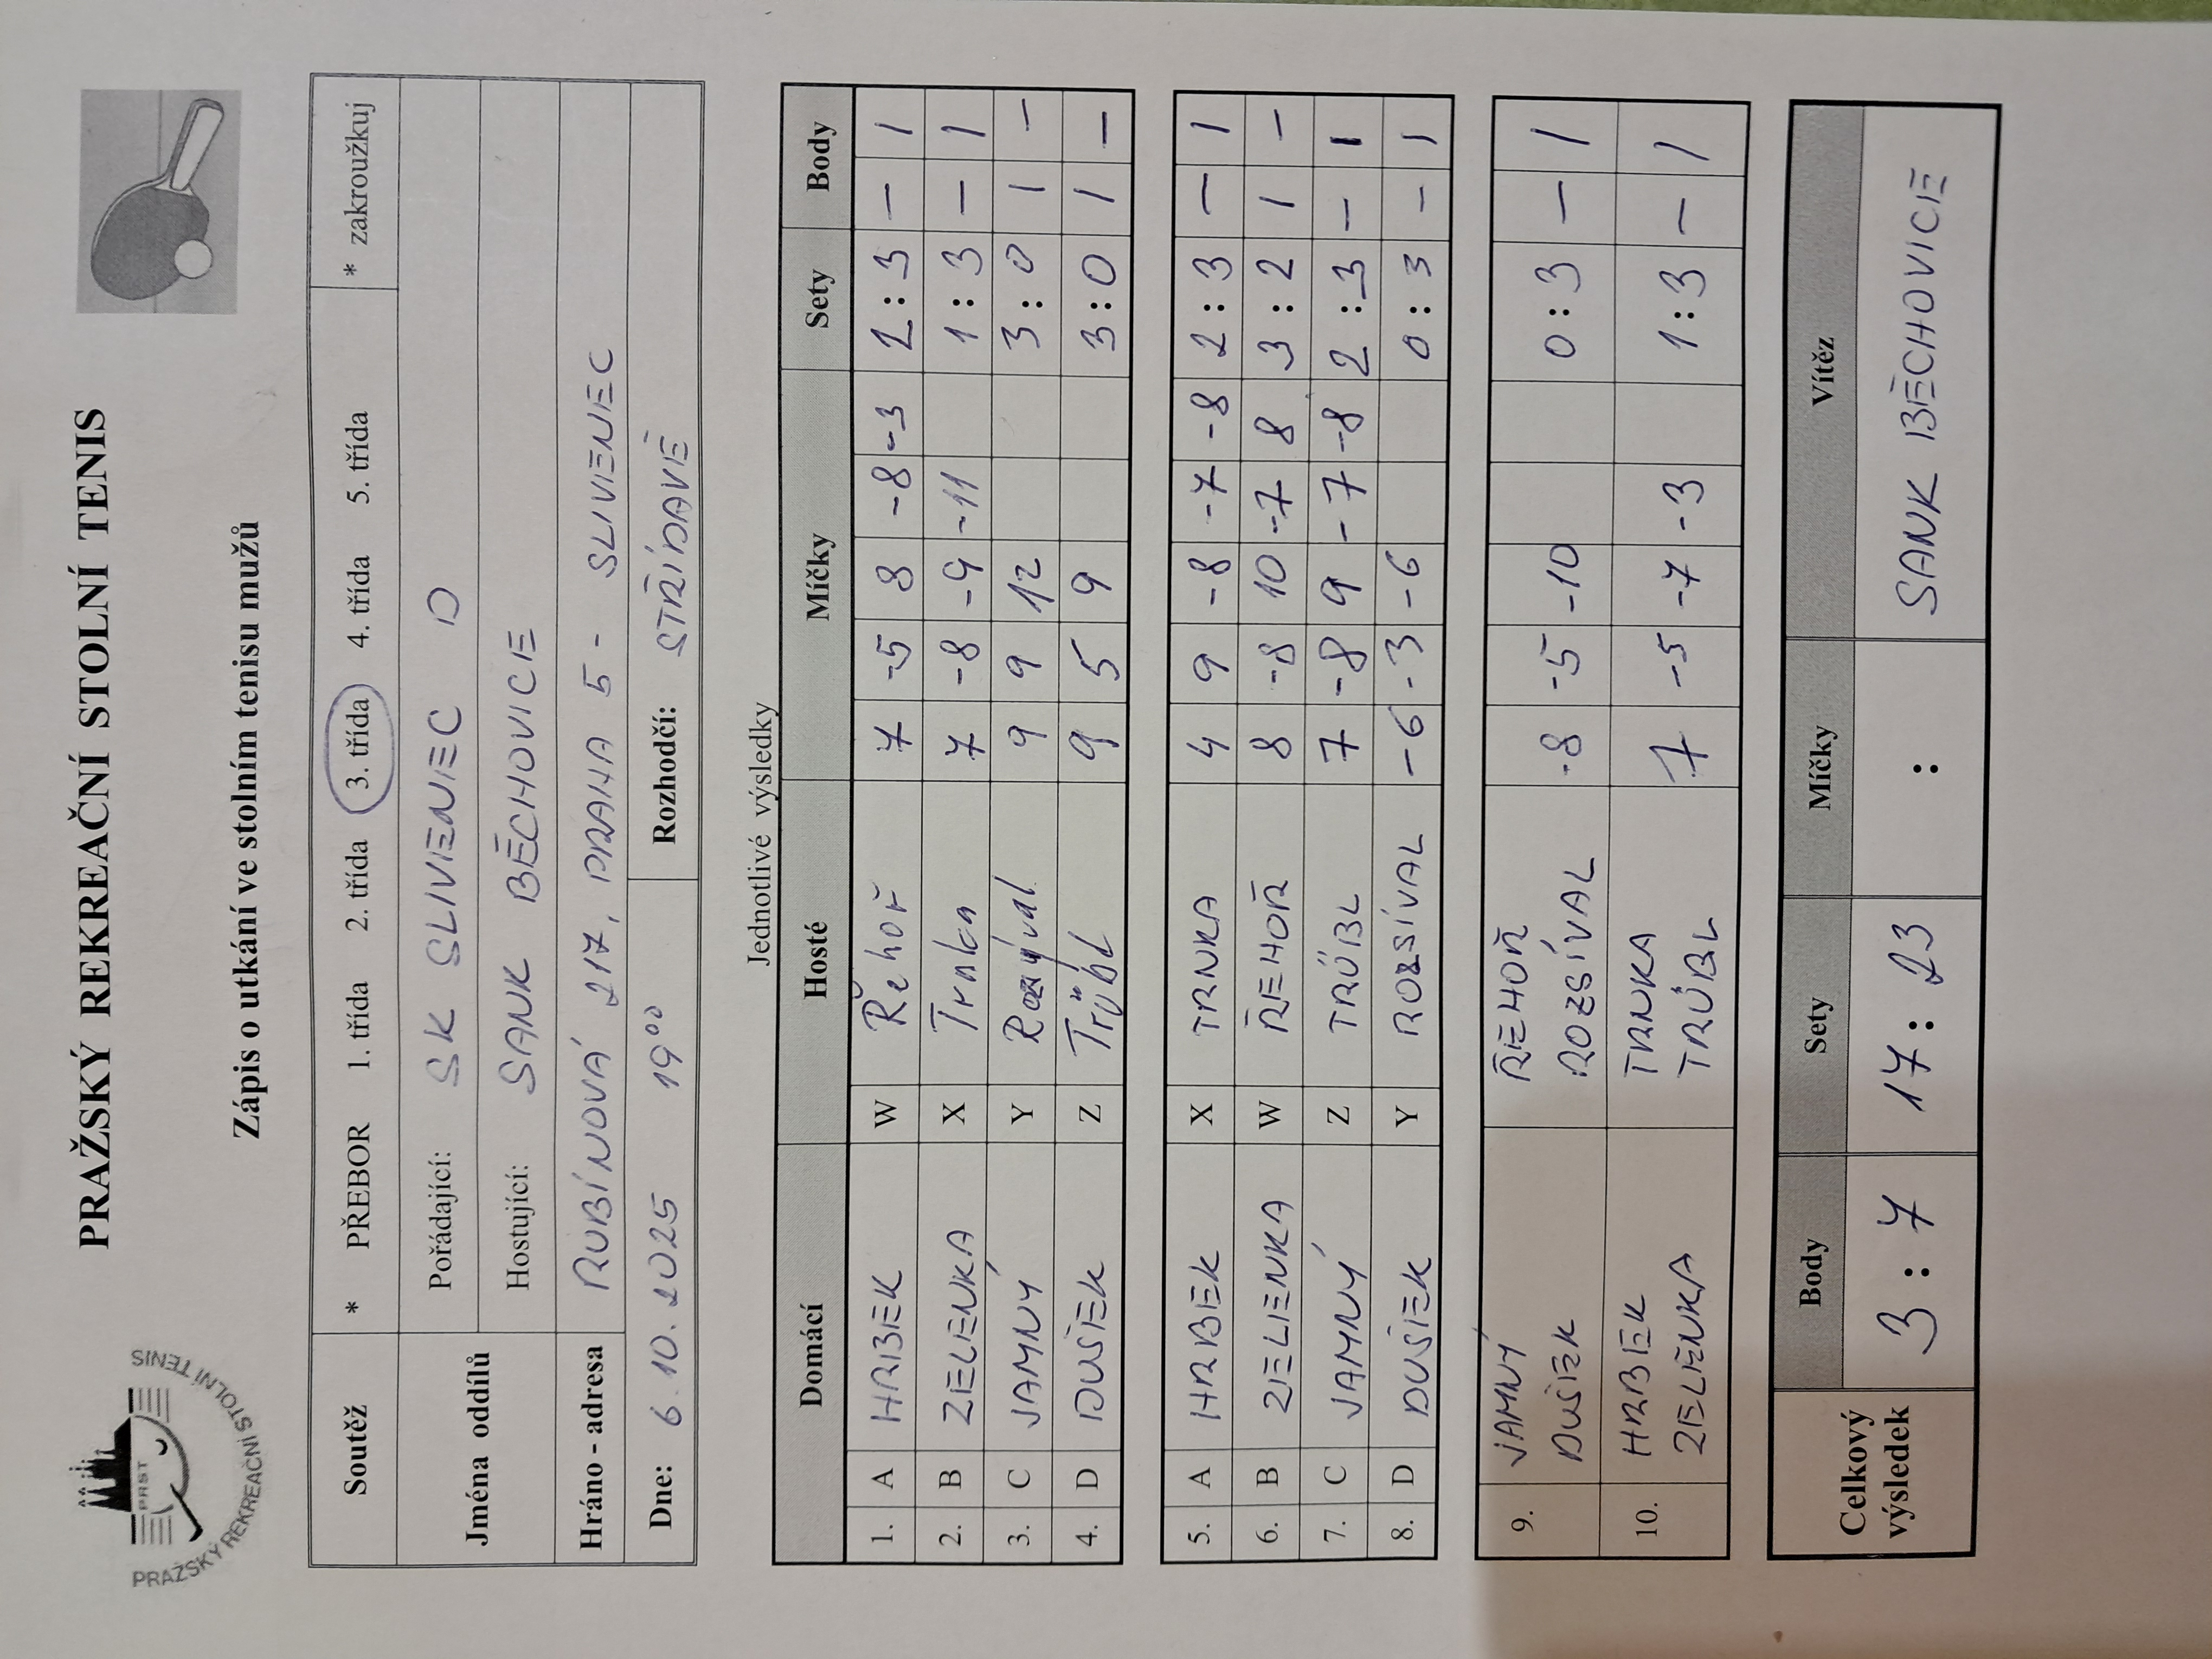 PRAŽSKÝ REKREAČNÍ STOLNÍ TENIS
PRST
PRAŽSKÝ REKREAČNÍ STOLNÍ TENIS
Zápis o utkání ve stolním tenisu mužů
Soutěž * PŘEBOR 1. třída 2. třída 3. třída 4. třída 5. třída * zakroužkuj
Jména oddílů Pořádající: SK SLIVENEC D
Hostující: SANK BĚCHOVICE
Hráno - adresa RUBÍNOVÁ 217, PRAHA 5 - SLIVENEC
Dne: 6.10.2025 19⁰⁰ Rozhodčí: STŘÍDAVĚ
Jednotlivé výsledky
Domácí Hosté Míčky Sety Body
1. A HRBEK W Řehoř 7 -5 8 -8 -3 2 : 3 – 1
2. B ZELENKA X Trnka 7 -8 -9 -11 1 : 3 – 1
3. C JAMNÝ Y 9 9 12 3 : 0 1 –
4. D DUŠEK Z Trübl 9 5 9 3 : 0 1 –
5. A HRBEK X TRNKA 4 9 -8 -7 -8 2 : 3 – 1
6. B ZELENKA W ŘEHOŘ 8 -8 10 -7 8 3 : 2 1 –
7. C JAMNÝ Z TRÜBL 7 -8 9 -7 -8 2 : 3 – 1
8. D DUŠEK Y ROZSÍVAL -6 -3 -6 0 : 3 – 1
9. JAMNÝ DUŠEK ŘEHOŘ ROZSÍVAL -8 -5 -10 0 : 3 – 1
10. HRBEK ZELENKA TRNKA TRÜBL 7 -5 -7 -3 1 : 3 – 1
Celkový výsledek Body Sety Míčky Vítěz
3 : 7 17 : 23 : SANK BĚCHOVICE